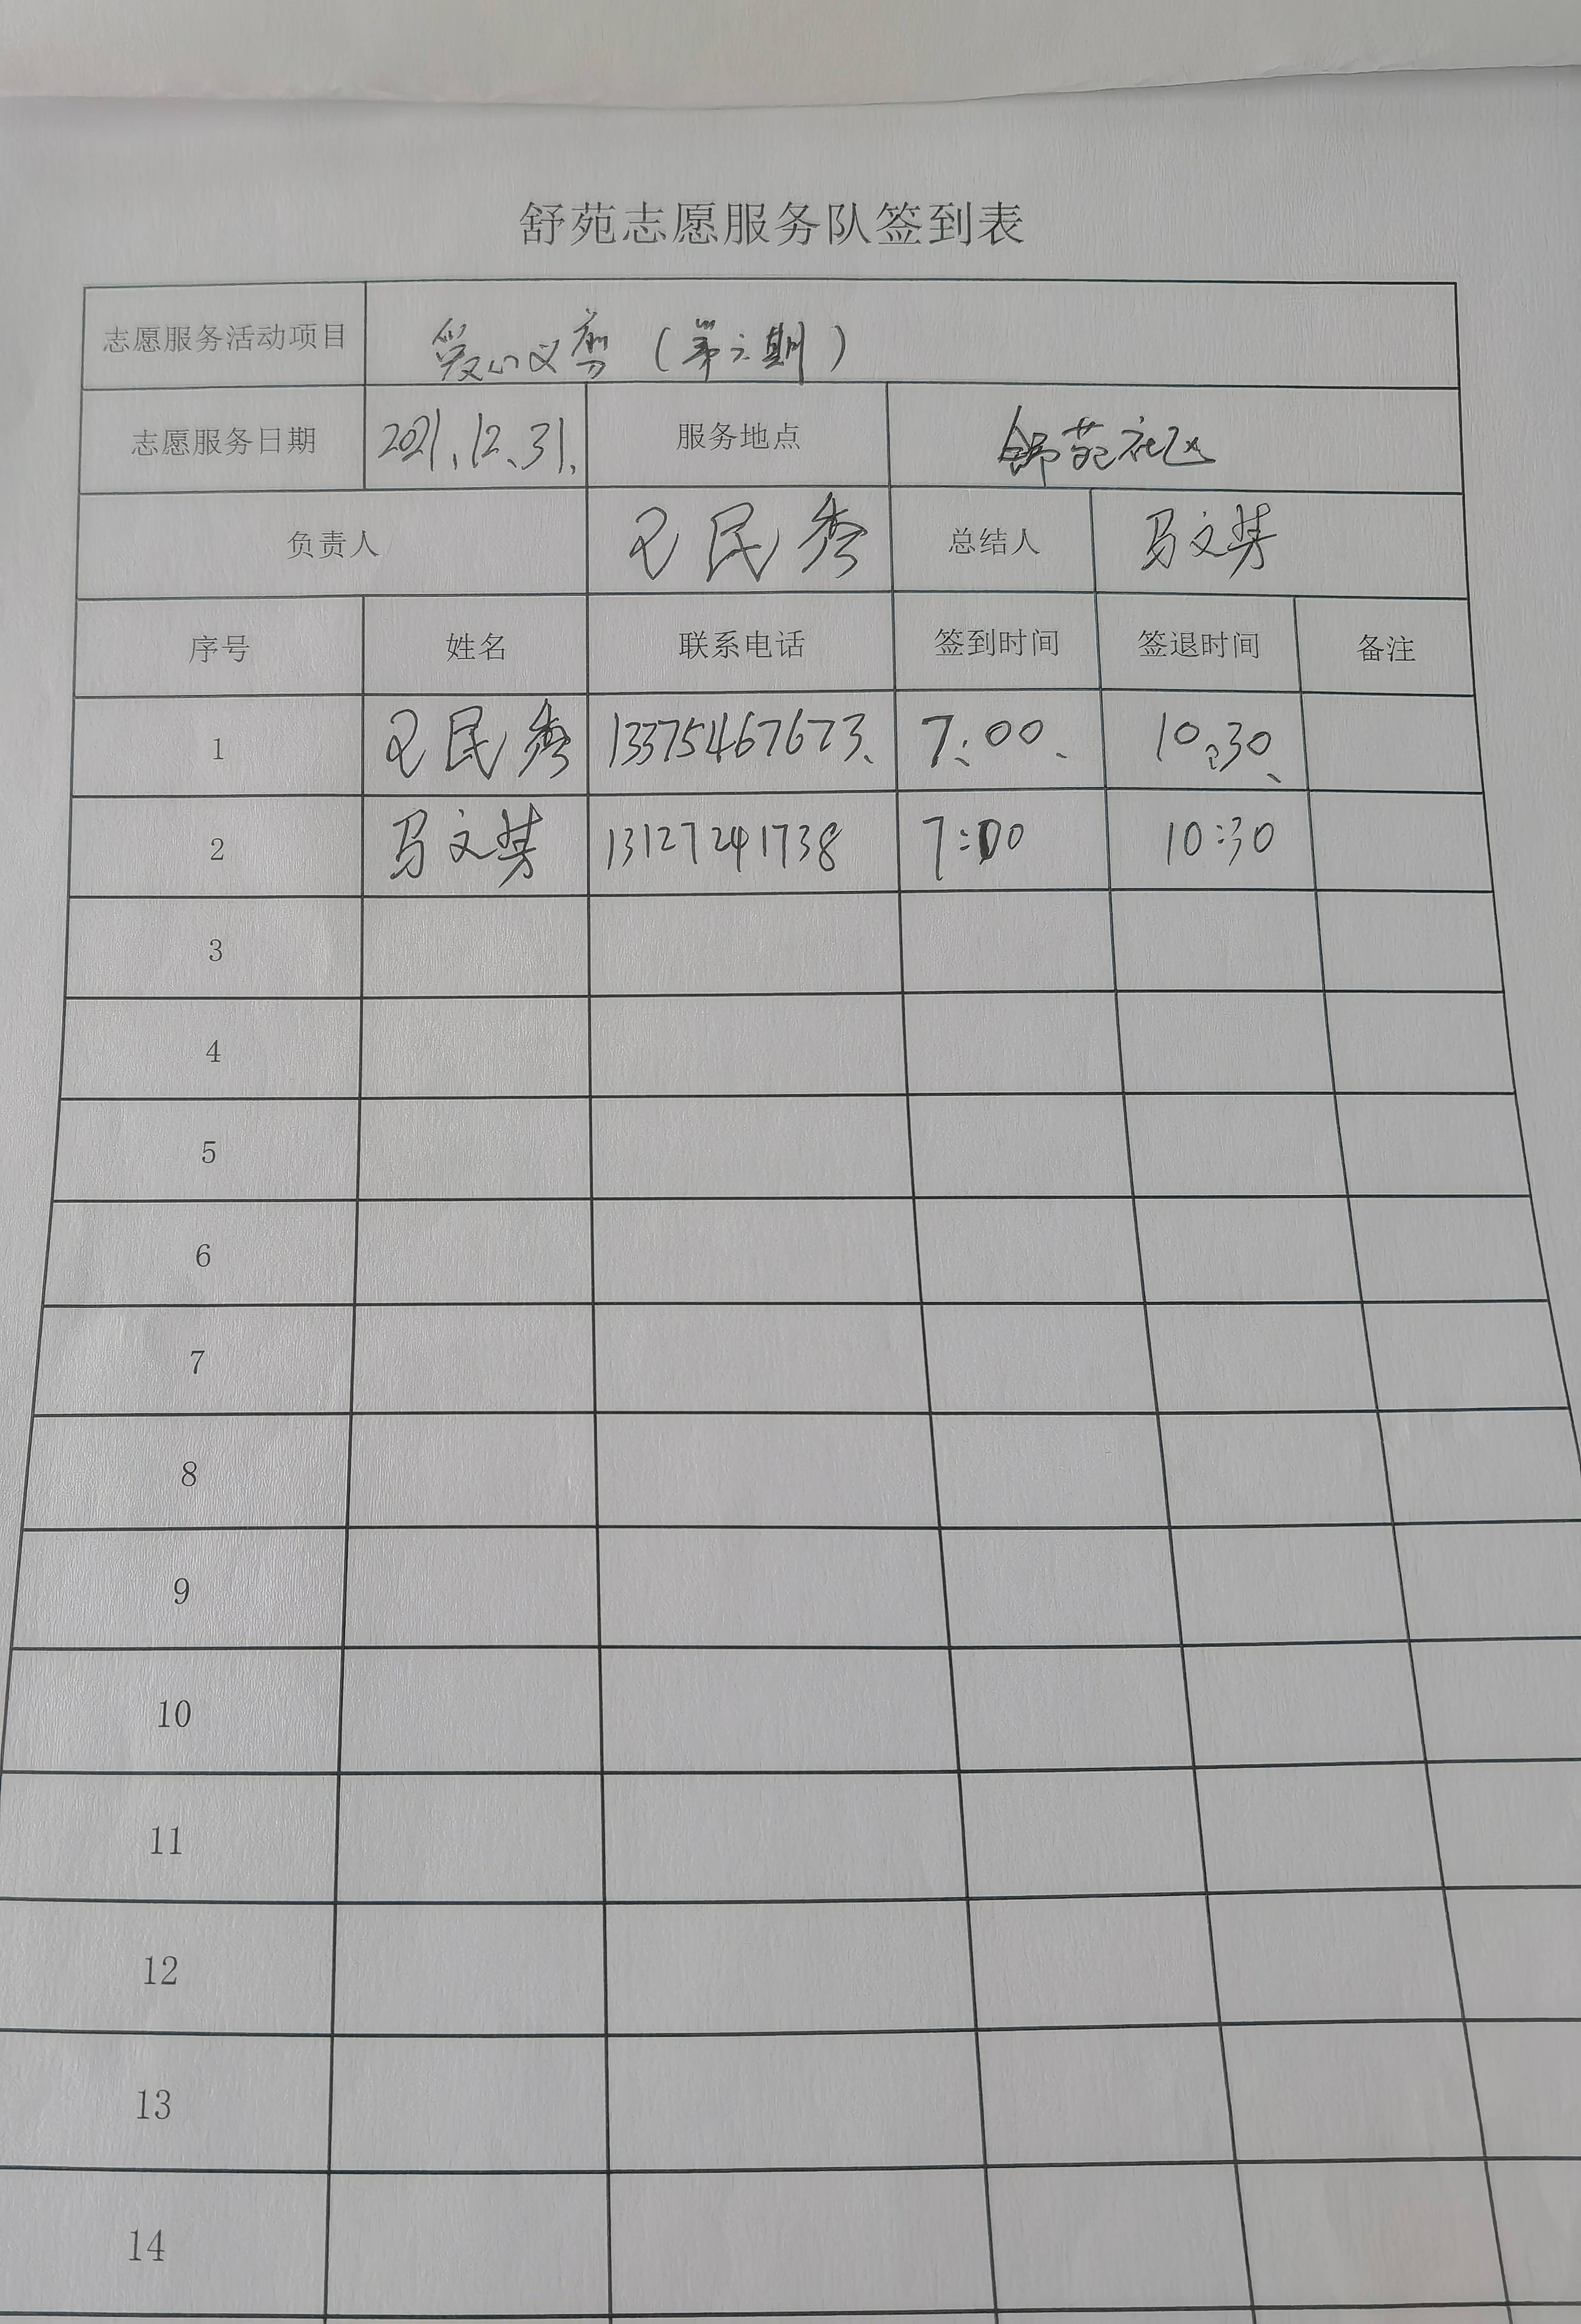 舒苑志愿服务队签到表
志愿服务活动项目 爱心义剪（第六期）
志愿服务日期 2021.12.31. 服务地点 舒苑社区
负责人 王民秀 总结人 马文
序号 姓名 联系电话 签到时间 签退时间 备注
1 王民秀 13375467673、 7:00、 10:30、
2 马文 13127241738 7:00 10:30
3
4
5
6
7
8
9
10
11
12
13
14